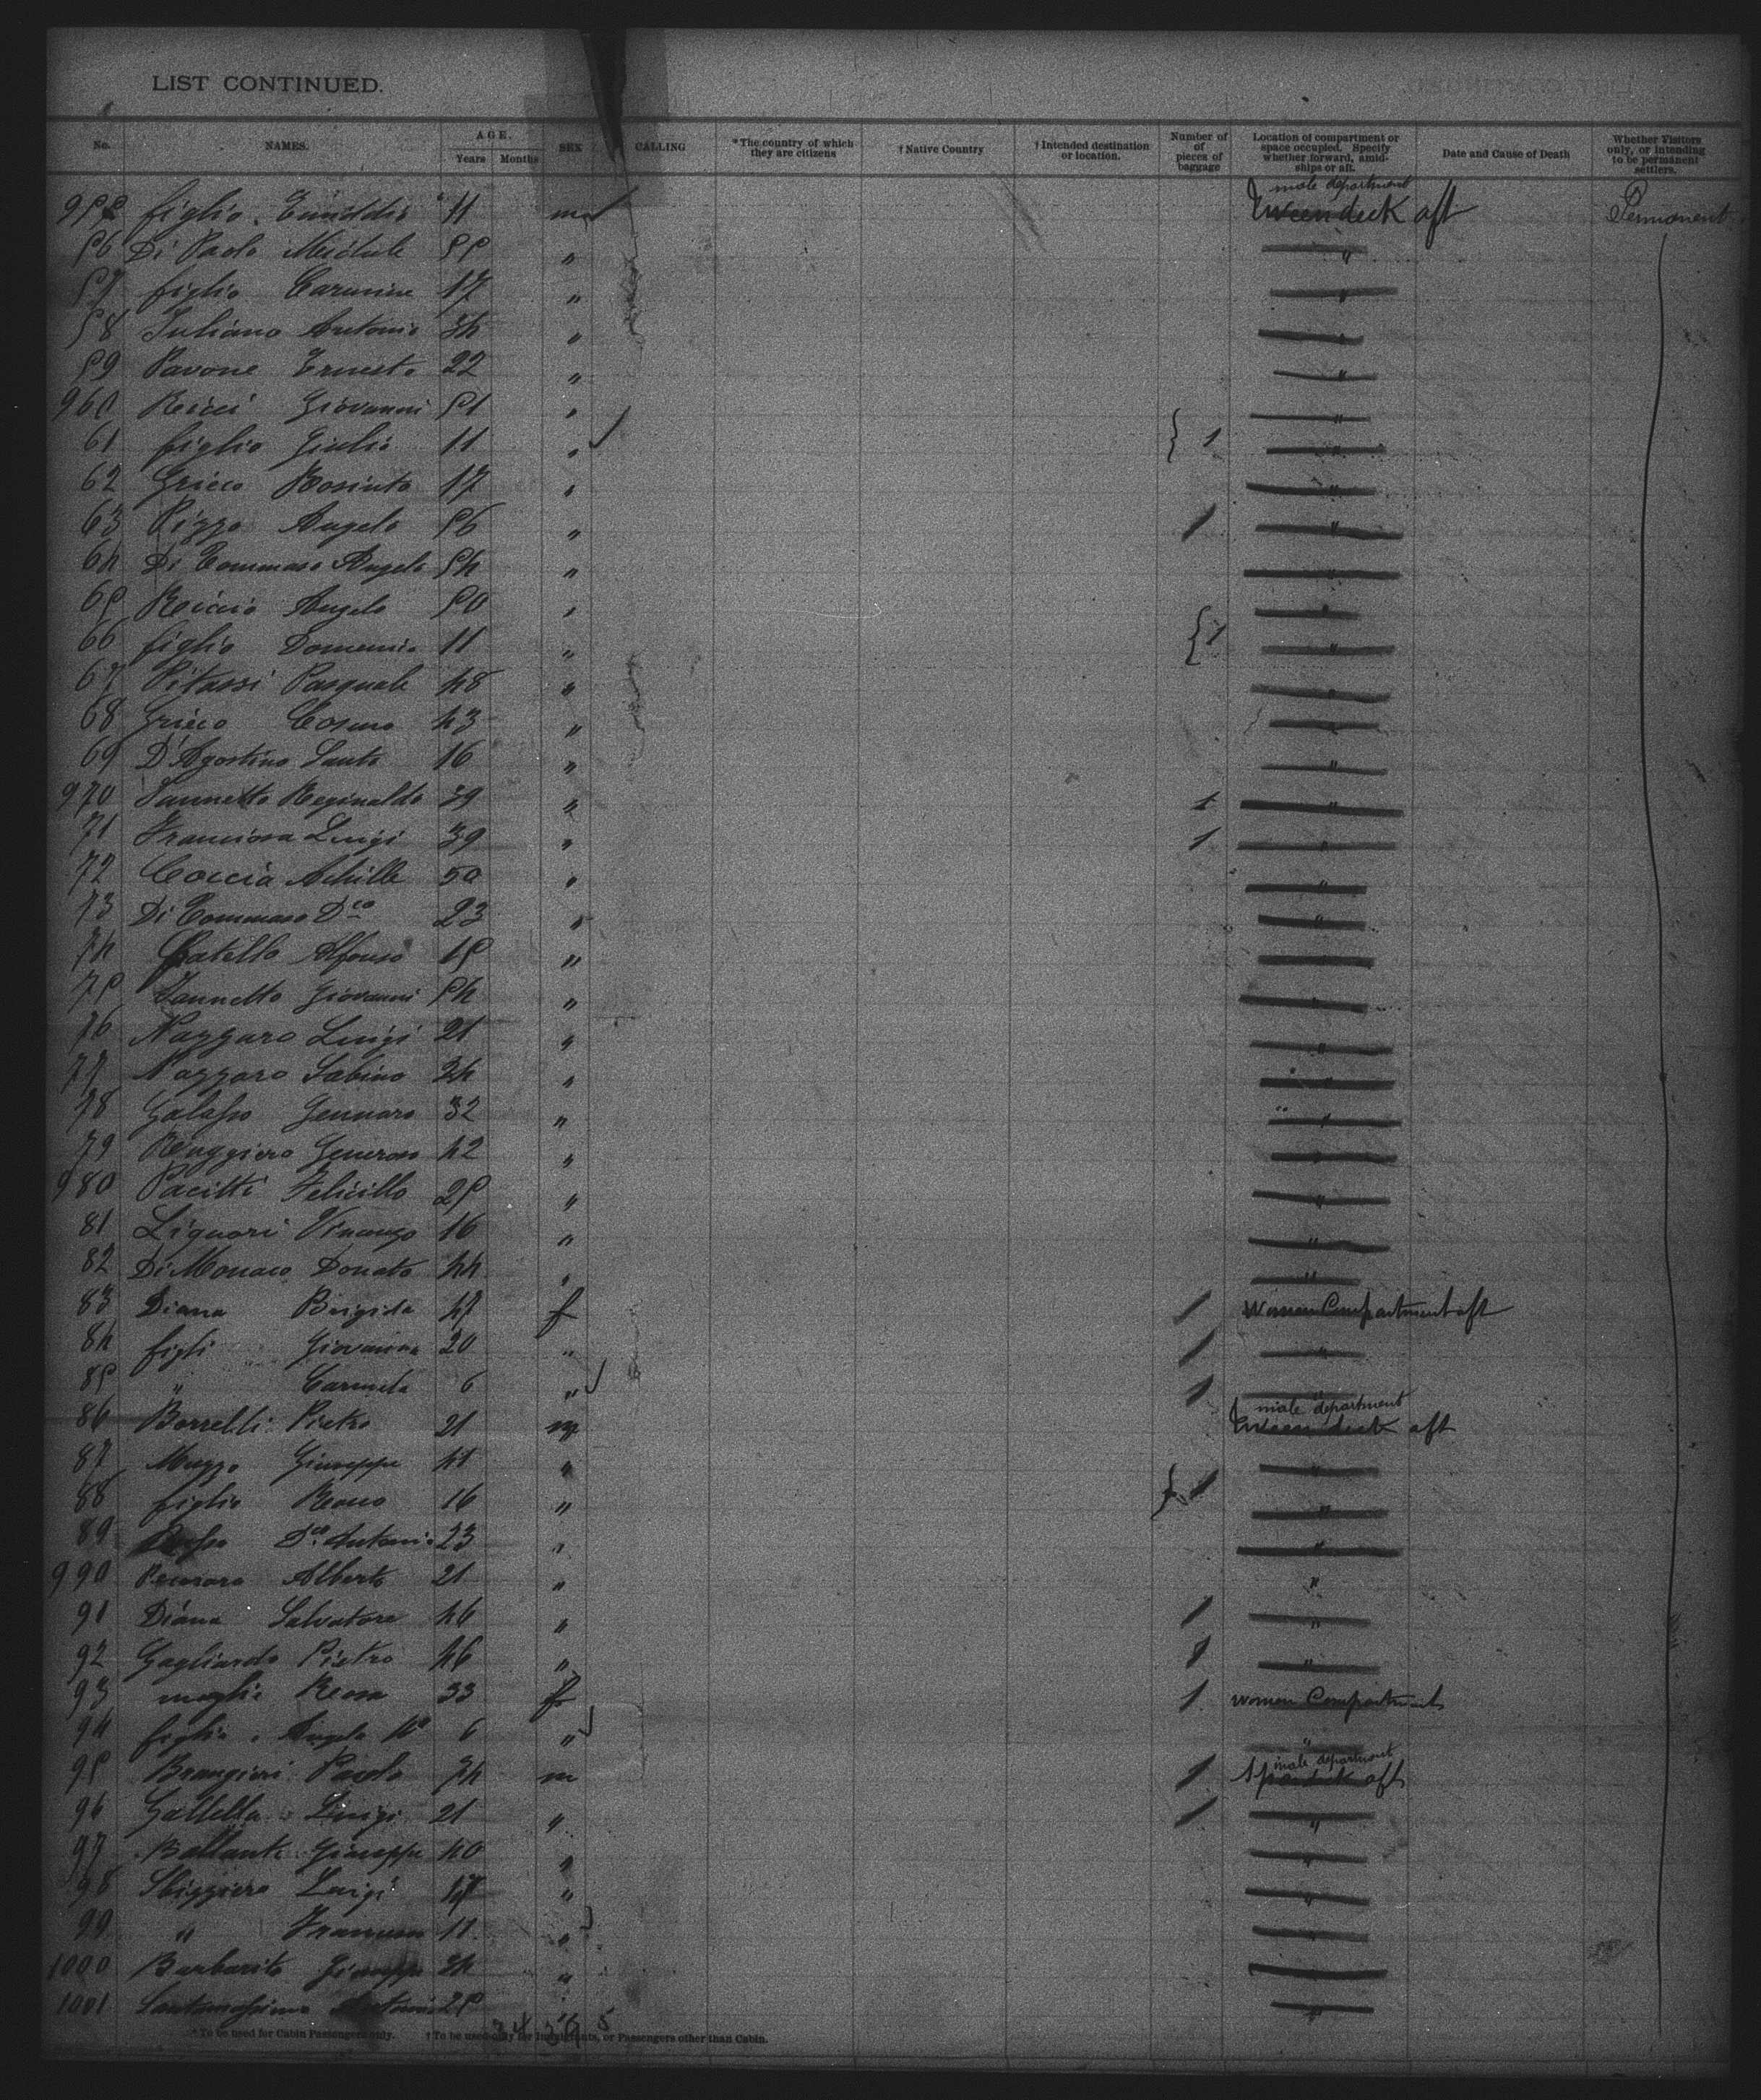 LIST CONTINUED.
No. NAMES. AGE. Years Months SEX CALLING *The country of which they are citizens †Native Country †Intended destination or location. Number of pieces of baggage Location of compartment or space occupied. Specify whether forward, amidships or aft. Date and Cause of Death Whether Visitors only, or intending to be permanent settlers.
male department
955 figlio 11 m Tweendeck aft Permanent
56 Di Paolo Michele 55 "
57 figlio Carmine 17 " "
58 Iuliano Antonio 34 "
59 Pavone Ernesto 22 " "
960 Ricci Giovanni 51 " "
61 figlio Giulio 11 " 1 "
62 Grieco 17 " "
63 Pizzo Angelo 56 " 1 "
64 Di Tommaso Angelo 54 " "
65 Riccio Angelo 50 " "
66 figlio Domenico 11 " 1 "
67 Pitassi Pasquale 48 " "
68 Grieco Cosmo 43 "
69 D'Agostino Santo 16 " "
970 Iannetta Reginaldo 39 " 1 "
71 Franciosa Luigi 39 " 1 "
72 Coccia Achille 50 " "
73 Di Tommaso Dco 23 " "
74 Catello Alfonso 15 "
75 Iannetta Giovanni 54 " "
76 Nazzaro Luigi 21 " "
77 Nazzaro Sabino 34 " "
78 Galasso Gennaro 32 " "
79 Ruggiero Generoso 42 " "
980 Pacitti Felicillo 25 " "
81 Liguori Vincenzo 16 " "
82 Di Monaco Donato 44 " "
83 Diana Brigida 47 f 1 Women Compartment aft
84 figli Giovanna 20 " 1 "
85 " Carmela 6 " 1 "
male department
86 Borrelli Pietro 21 m Tween deck aft
87 Muzzo Giuseppe 41 " "
88 figlio Rocco 16 " 1 "
89 Dco Antonio 23 " "
990 Alberto 21 " "
91 Diana Salvatore 46 " 1 "
92 Gagliardo Pietro 46 " 1 "
93 moglie Rosa 33 f 1 women Compartment
94 figlia Angela Ma 6 " "
male department
95 Paolo 34 m 1 Spardeck aft
96 Luigi 21 " 1 "
97 Ballante Giuseppe 40 " "
98 Luigi 17 " "
99 " Francesco 11 " "
1000 Barbarito Giuseppe 34 "
1001 Santomassimo Antonio 25 "
*To be used for Cabin Passengers only. †To be used only for Immigrants, or Passengers other than Cabin.